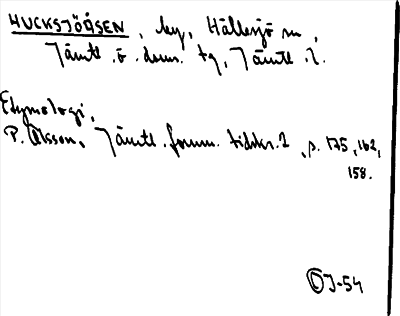 HUCKSJÖÅSEN, by, Hällesjö sn,
Jämtl. ö. dom. tg, Jämtl. l.
Etymologi,
P. Olsson, Jämtl. fornm. tidskr. 2, s. 175, 162,
158.
J-54